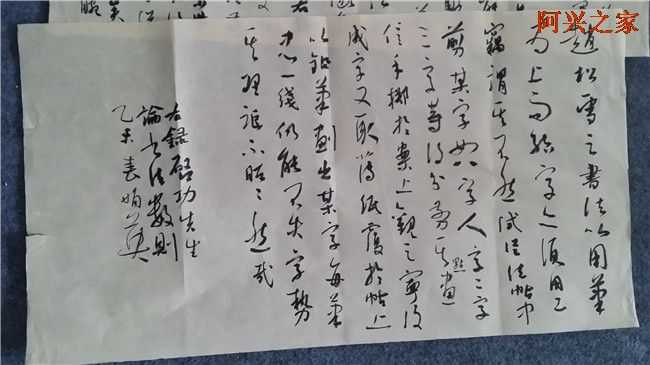 趙松雪云書法以用筆
為上而結字亦須用工
竊謂其不然試從法帖中
剪某字如八字人字二字
三字等復分剪其點畫
信手擲於案上觀之寧復
成字又取薄紙覆於帖上
以鉛筆劃出某字每筆
中心一綫仍能不失字勢
其理詎不昭昭然哉
右錄啓功先生
論書法數則
乙未春娟
阿兴之家